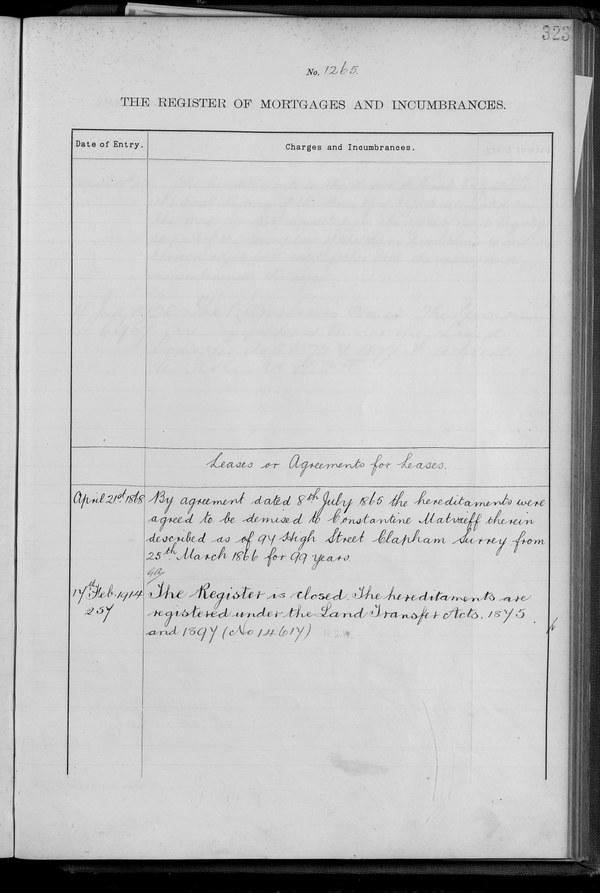 323
No. 1265.
THE REGISTER OF MORTGAGES AND INCUMBRANCES.
Date of Entry.
Charges and Incumbrances.
Leases or Agreements for Leases.
April 21st 1868
By agreement dated 8th July 1865 the hereditaments were
agreed to be demised to Constantine Matvieff therein
described as of 94 High Street Clapham Surrey from
25th March 1866 for 99 years.
17th Feb. 1914
257
The Register is closed. The hereditaments are
registered under the Land Transfer Acts. 1875
and 1897 (No 14617)